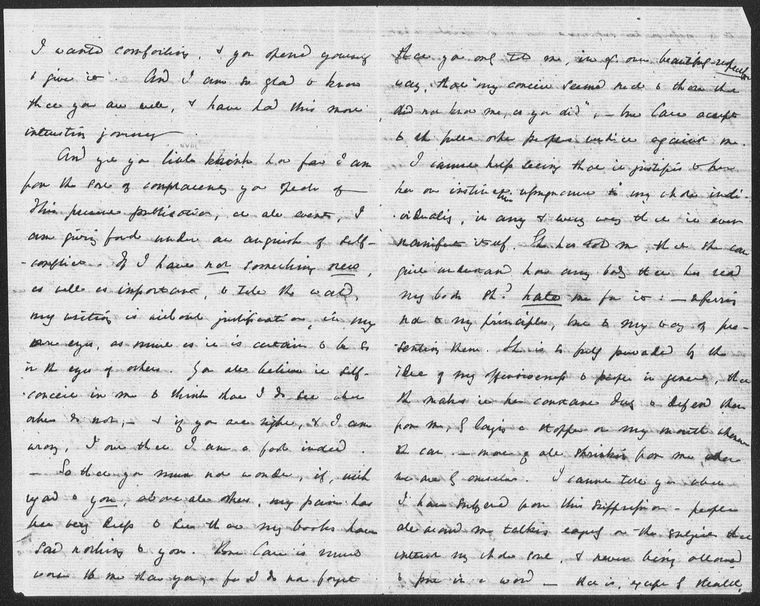 I wanted comforting, & you spend yourself
to give it. And I am so glad to know
that you are well, & have had this more
interesting journey
And yet you little think how far I am
from the sort of complacency you speak of
This precise publication, at all events, I
am giving forth under an anguish of self-
conflict. If I have not something new,
as well as important, to tell the world,
my writing is without justification, in my
own eyes, as much as it is certain to be so
in the eyes of others. You all believe it self-
conceit in me to think that I do see what
others do not, – & if you are right, & I am
wrong, I own that I am a fool indeed.
– So that you must not wonder, if, with
regard to you, above all others, my pain has
been very deep to see that my books have
said nothing to you. Cara is much
worse to me than you, – for I do not forget
that you only told me, in your own beautiful
way, that "my conceit seemed such to those who
did not know me, as you did", – but Cara
to the full other people's verdict against me.
I cannot help seeing that it justifies to her
her own instinctive repugnance to my whole indi-
viduality, in any & every way that it is ever
manifest itself. She has told me, that she can
quite understand how any body that has read
my books shd hate me for it: – referring
not to my principles, but to my way of pre-
senting them. She is so fully pervaded by the
idea of my offensiveness to people in general, that
she makes it her constant duty to defend them
from me, by laying a stopper on my mouth whenever
she can, – more of all shrinking from me when
we are by ourselves. I cannot tell you what
I have suffered from this suppression – people
all around me talking eagerly on the subjects that
interest my whole soul, & never being allowed
to put in a word – that is, except by stealth,